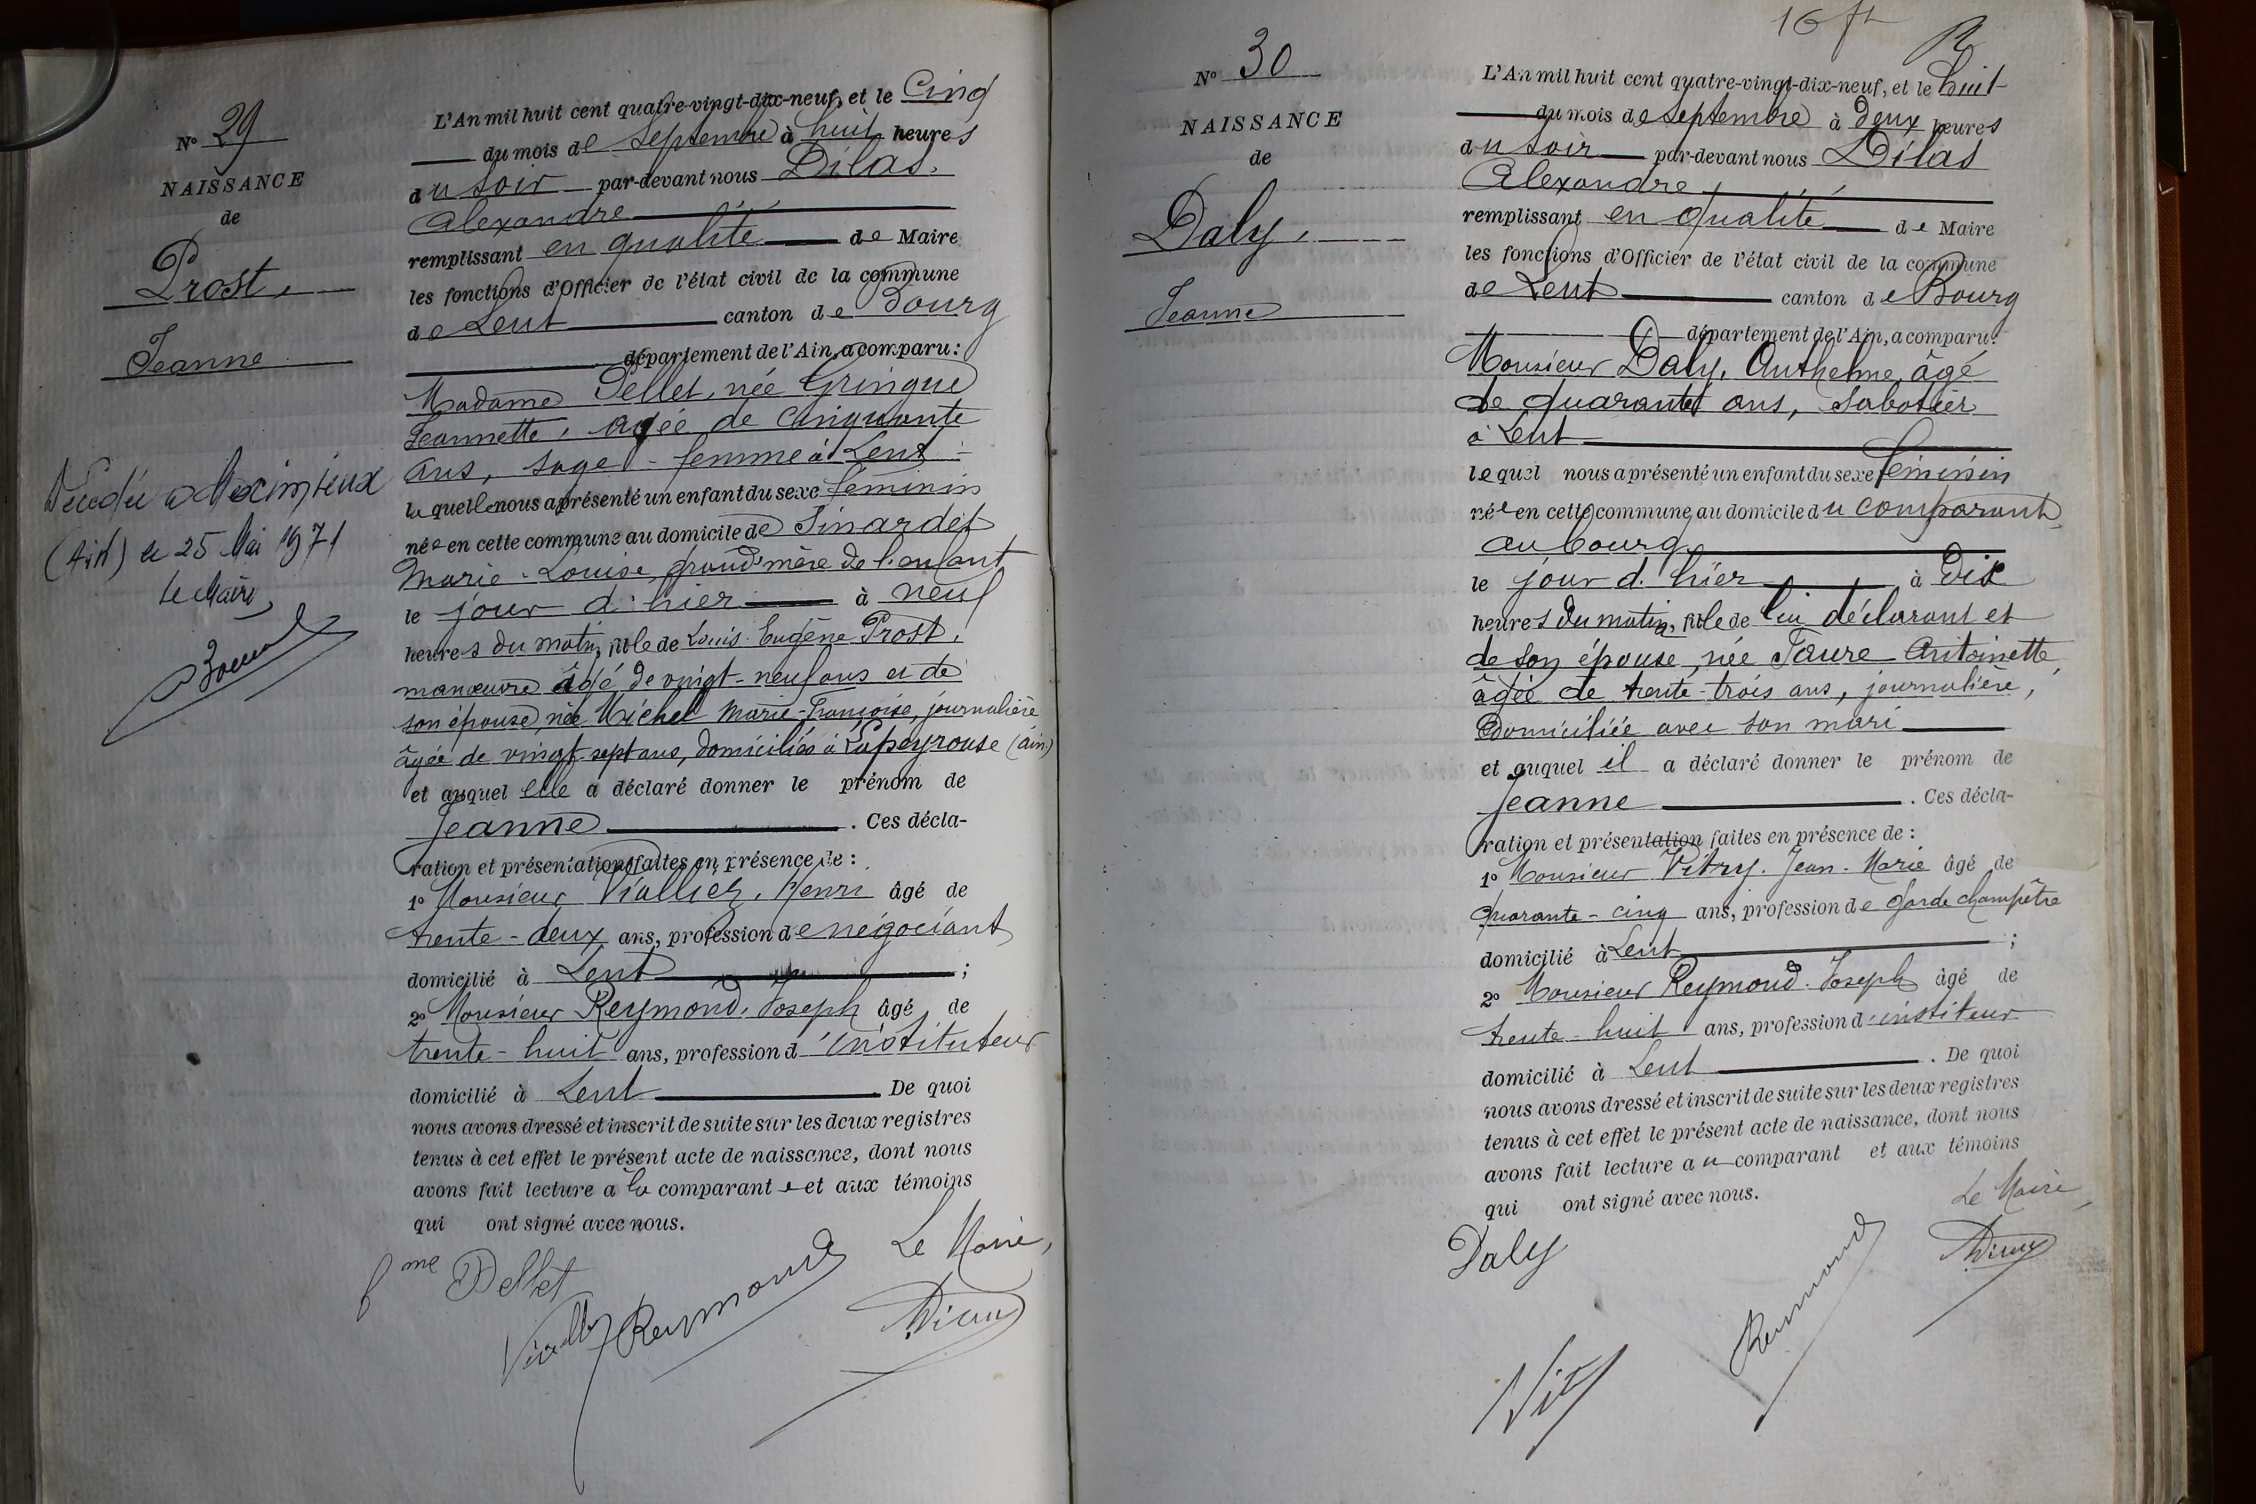 Nº 29
NAISSANCE
de
Prost,
Jeanne
Décédée à Meximieux
(Ain) le 25 Mai 1971
Le Maire,
L'An mil huit cent quatre-vingt-dix-neuf, et le Cinq
du mois de Septembre à huit heures
du soir par-devant nous Dilas,
Alexandre
remplissant en qualité de Maire
les fonctions d'Officier de l'état civil de la commune
de Lent canton de Bourg
département de l'Ain, a comparu:
Madame Pellet, née Gringue
Jeannette, agée de cinquante
ans, sage-femme à Lent
laquelle nous a présenté un enfant du sexe féminin
née en cette commune au domicile de Sinardet
Marie-Louise, grand'mère de l'enfant
le jour d'hier à neuf
heures du matin, fille de Louis Eugène Prost,
manœuvre âgé de vingt-neuf ans et de
son épouse, née Michel Marie-Françoise, journalière
âgée de vingt-sept ans, domiciliés à Lapeyrouse (Ain)
et auquel elle a déclaré donner le prénom de
Jeanne . Ces décla-
ration et présentation faites en présence de :
1º Monsieur Viallier, Henri âgé de
trente-deux ans, profession de négociant
domicilié à Lent ;
2º Monsieur Reymond, Joseph âgé de
trente-huit ans, profession d'instituteur
domicilié à Lent De quoi
nous avons dressé et inscrit de suite sur les deux registres
tenus à cet effet le présent acte de naissance, dont nous
avons fait lecture a la comparante et aux témoins
qui ont signé avec nous.
Le Maire,
fme Pellet
Reymond
16 ft
Nº 30
NAISSANCE
de
Daly,
Jeanne
L'An mil huit cent quatre-vingt-dix-neuf, et le huit
du mois de Septembre à deux heures
du soir par-devant nous Dilas
Alexandre
remplissant en qualité de Maire
les fonctions d'Officier de l'état civil de la commune
de Lent canton de Bourg
département de l'Ain, a comparu:
Monsieur Daly, Anthelme, âgé
de quarante ans, sabotier
à Lent
lequel nous a présenté un enfant du sexe féminin
née en cette commune au domicile du comparant,
au bourg
le jour d'hier à dix
heures du matin, fille de lui déclarant et
de son épouse, née Faure Antoinette
âgée de trente-trois ans, journalière,
domiciliée avec son mari
et auquel il a déclaré donner le prénom de
Jeanne . Ces décla-
ration et présentation faites en présence de :
1º Monsieur Vitry, Jean-Marie âgé de
quarante-cinq ans, profession de garde champêtre
domicilié à Lent ;
2º Monsieur Reymond, Joseph âgé de
trente-huit ans, profession d'institeur
domicilié à Lent . De quoi
nous avons dressé et inscrit de suite sur les deux registres
tenus à cet effet le présent acte de naissance, dont nous
avons fait lecture au comparant et aux témoins
qui ont signé avec nous.
Le Maire,
Daly
Reymond